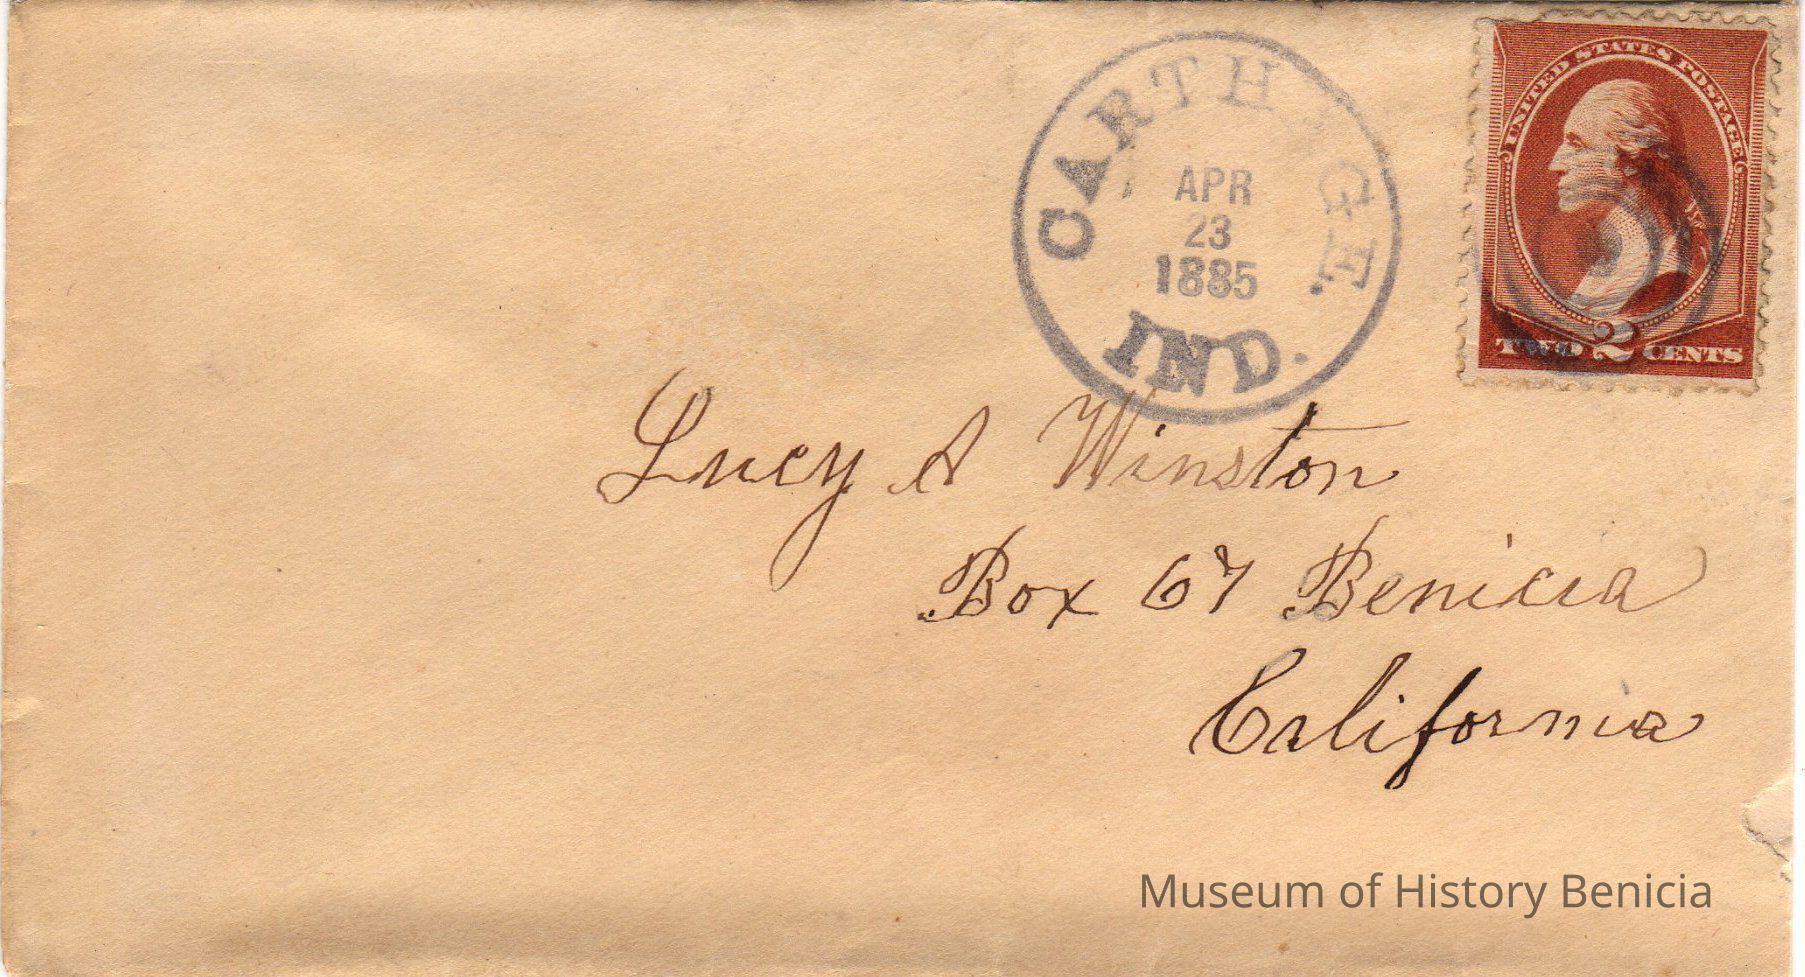 CARTHAGE.
APR
23
1885
IND.
UNITED STATES POSTAGE
TWO 2 CENTS
Lucy A Winston
Box 67 Benicia
California
Museum of History Benicia